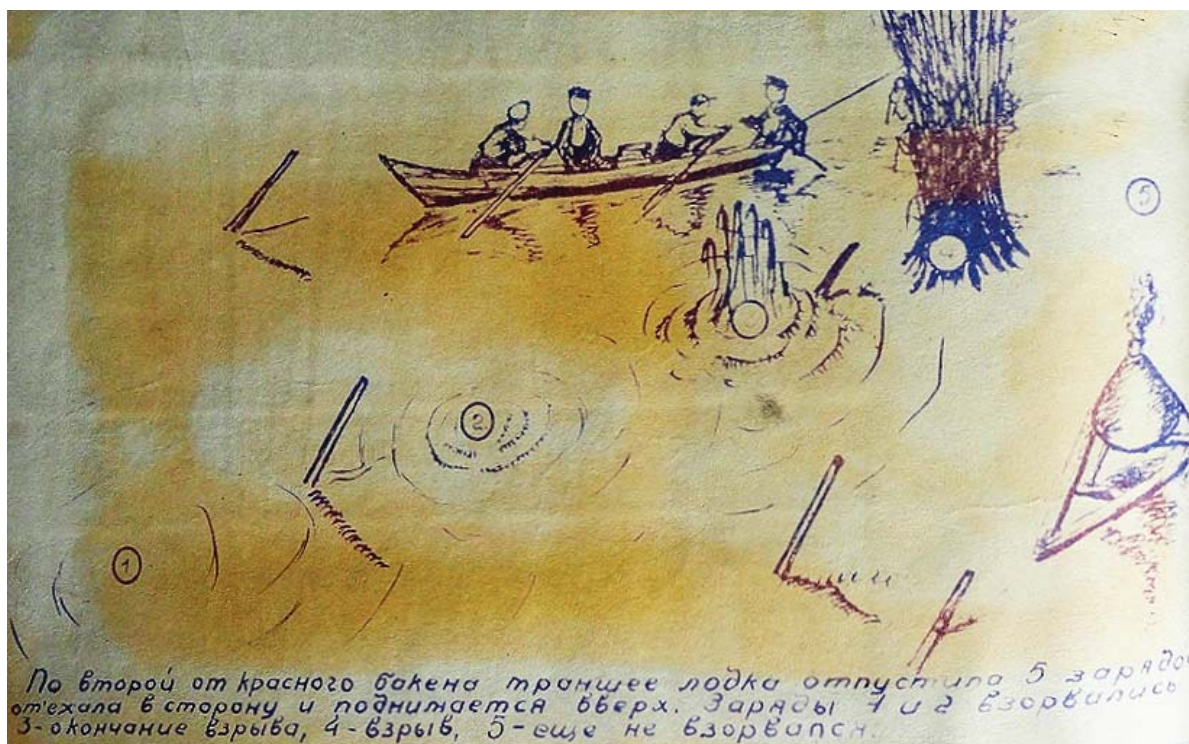 5
4
2
1
По второй от красного бакена траншее лодка отпустила 5 зарядо
от'ехала в сторону и поднимается вверх. Заряды 1 и 2 взорвались
3-окончание взрыва, 4-взрыв, 5-еще не взорвался.